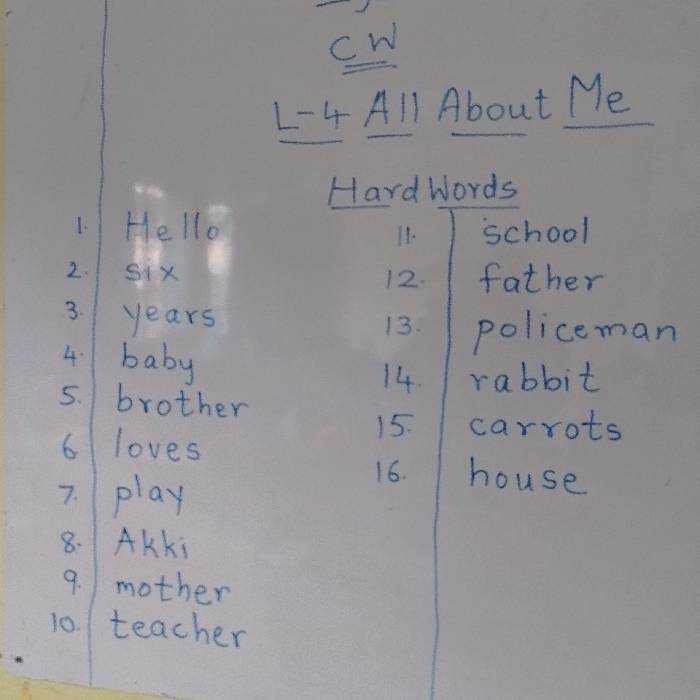 CW
L-4 All About Me
Hard Words
1. Hello
2. six
3. years
4. baby
5. brother
6 loves
7. play
8. Akki
9. mother
10. teacher
11. school
12. father
13. policeman
14. rabbit
15. carrots
16. house